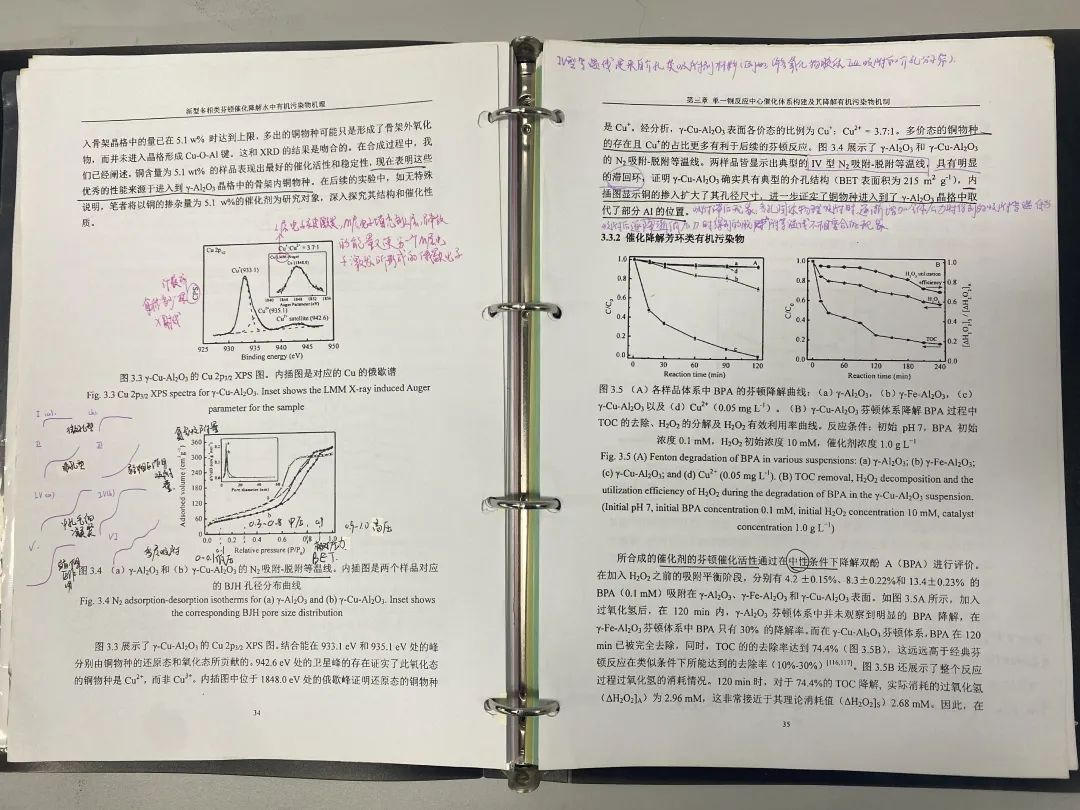 新型多相类芬顿催化降解水中有机污染物机理
入骨架晶格中的量已在 5.1 w% 时达到上限，多出的铜物种可能只是形成了骨架外氧化
物，而并未进入晶格形成 Cu-O-Al 键。这和 XRD 的结果是吻合的。在合成过程中，我
们已经阐述，铜含量为 5.1 wt% 的样品表现出最好的催化活性和稳定性，现在表明这些
优秀的性能来源于进入到 γ-Al₂O₃ 晶格中的骨架内铜物种。在后续的实验中，如无特殊
说明，笔者将以铜的掺杂量为 5.1 w%的催化剂为研究对象，深入探究其结构和催化性
质。
Cu 2p3/2
Cu⁺:Cu²⁺ = 3.7:1
Cu LMM Auger
Cu⁺(1848.0)
1840 1844 1848 1852 1856
Auger Parameter (eV)
Cu⁺(933.1)
Cu²⁺(935.1)
Cu²⁺ satellite (942.6)
925 930 935 940 945 950
Binding energy (eV)
X射线
图 3.3 γ-Cu-Al₂O₃ 的 Cu 2p3/2 XPS 图。内插图是对应的 Cu 的俄歇谱
Fig. 3.3 Cu 2p3/2 XPS spectra for γ-Cu-Al₂O₃. Inset shows the LMM X-ray induced Auger
parameter for the sample
I (a).
(b)
微孔型
II
III
IV(a)
IV(b)
V.
VI
氮气吸附量
360
300
240
180
120
60
0
Adsorbed volume (cm³ g⁻¹)
Pore diameter (nm)
0 20 40 60
a
b
0.3-0.8 中压
0.9-1.0 高压
0.0 0.2 0.4 0.6 0.8 1.0
Relative pressure (P/P₀)
0-0.1低压
BET
图 3.4 （a）γ-Al₂O₃ 和（b）γ-Cu-Al₂O₃ 的 N₂ 吸附-脱附等温线。内插图是两个样品对应
的 BJH 孔径分布曲线
Fig. 3.4 N₂ adsorption-desorption isotherms for (a) γ-Al₂O₃ and (b) γ-Cu-Al₂O₃. Inset shows
the corresponding BJH pore size distribution
图 3.3 展示了 γ-Cu-Al₂O₃ 的 Cu 2p3/2 XPS 图。结合能在 933.1 eV 和 935.1 eV 处的峰
分别由铜物种的还原态和氧化态所贡献的。942.6 eV 处的卫星峰的存在证实了此氧化态
的铜物种是 Cu²⁺，而非 Cu³⁺。内插图中位于 1848.0 eV 处的俄歇峰证明还原态的铜物种
34
第三章 单一铜反应中心催化体系构建及其降解有机污染物机制
是 Cu⁺。经分析，γ-Cu-Al₂O₃ 表面各价态的比例为 Cu⁺: Cu²⁺ = 3.7:1。多价态的铜物种
的存在且 Cu⁺的占比更多有利于后续的芬顿反应。图 3.4 展示了 γ-Al₂O₃ 和 γ-Cu-Al₂O₃
的 N₂ 吸附-脱附等温线。两样品皆显示出典型的 IV 型 N₂ 吸附-脱附等温线，具有明显
的滞回环，证明 γ-Cu-Al₂O₃ 确实具有典型的介孔结构（BET 表面积为 215 m² g⁻¹）。内
插图显示铜的掺入扩大了其孔径尺寸，进一步证实了铜物种进入到了 γ-Al₂O₃ 晶格中取
代了部分 Al 的位置。
3.3.2 催化降解芳环类有机污染物
A
1.0
0.8
0.6
0.4
0.2
0.0
C/C₀
a
d
b
c
0 30 60 90 120
Reaction time (min)
B
1.0
0.8
0.6
0.4
0.2
0.0
C/C₀
H₂O₂ utilization
efficiency
H₂O₂
TOC
1.0
0.8
0.6
0.4
0.2
0.0
0 60 120 180 240
Reaction time (min)
图 3.5 （A）各样品体系中 BPA 的芬顿降解曲线：（a）γ-Al₂O₃，（b）γ-Fe-Al₂O₃，（c）
γ-Cu-Al₂O₃ 以及（d）Cu²⁺（0.05 mg L⁻¹）。（B）γ-Cu-Al₂O₃ 芬顿体系降解 BPA 过程中
TOC 的去除、H₂O₂ 的分解及 H₂O₂ 有效利用率曲线。反应条件：初始 pH 7，BPA 初始
浓度 0.1 mM，H₂O₂ 初始浓度 10 mM，催化剂浓度 1.0 g L⁻¹
Fig. 3.5 (A) Fenton degradation of BPA in various suspensions: (a) γ-Al₂O₃; (b) γ-Fe-Al₂O₃;
(c) γ-Cu-Al₂O₃; and (d) Cu²⁺ (0.05 mg L⁻¹). (B) TOC removal, H₂O₂ decomposition and the
utilization efficiency of H₂O₂ during the degradation of BPA in the γ-Cu-Al₂O₃ suspension.
(Initial pH 7, initial BPA concentration 0.1 mM, initial H₂O₂ concentration 10 mM, catalyst
concentration 1.0 g L⁻¹)
所合成的催化剂的芬顿催化活性通过在中性条件下降解双酚 A（BPA）进行评价。
在加入 H₂O₂ 之前的吸附平衡阶段，分别有 4.2 ±0.15%、8.3±0.22%和 13.4±0.23% 的
BPA（0.1 mM）吸附在 γ-Al₂O₃、γ-Fe-Al₂O₃ 和 γ-Cu-Al₂O₃ 表面。如图 3.5A 所示，加入
过氧化氢后，在 120 min 内，γ-Al₂O₃ 芬顿体系中并未观察到明显的 BPA 降解，在
γ-Fe-Al₂O₃ 芬顿体系中 BPA 只有 30% 的降解率。而在 γ-Cu-Al₂O₃ 芬顿体系，BPA 在 120
min 已被完全去除，同时，TOC 的的去除率达到 74.4%（图 3.5B），这远远高于经典芬
顿反应在类似条件下所能达到的去除率（10%-30%）[116,117]。图 3.5B 还展示了整个反应
过程过氧化氢的消耗情况。120 min 时，对于 74.4%的 TOC 降解，实际消耗的过氧化氢
（ΔH₂O₂]A）为 2.96 mM，这非常接近于其理论消耗值（ΔH₂O₂]S）2.68 mM。因此，在
35